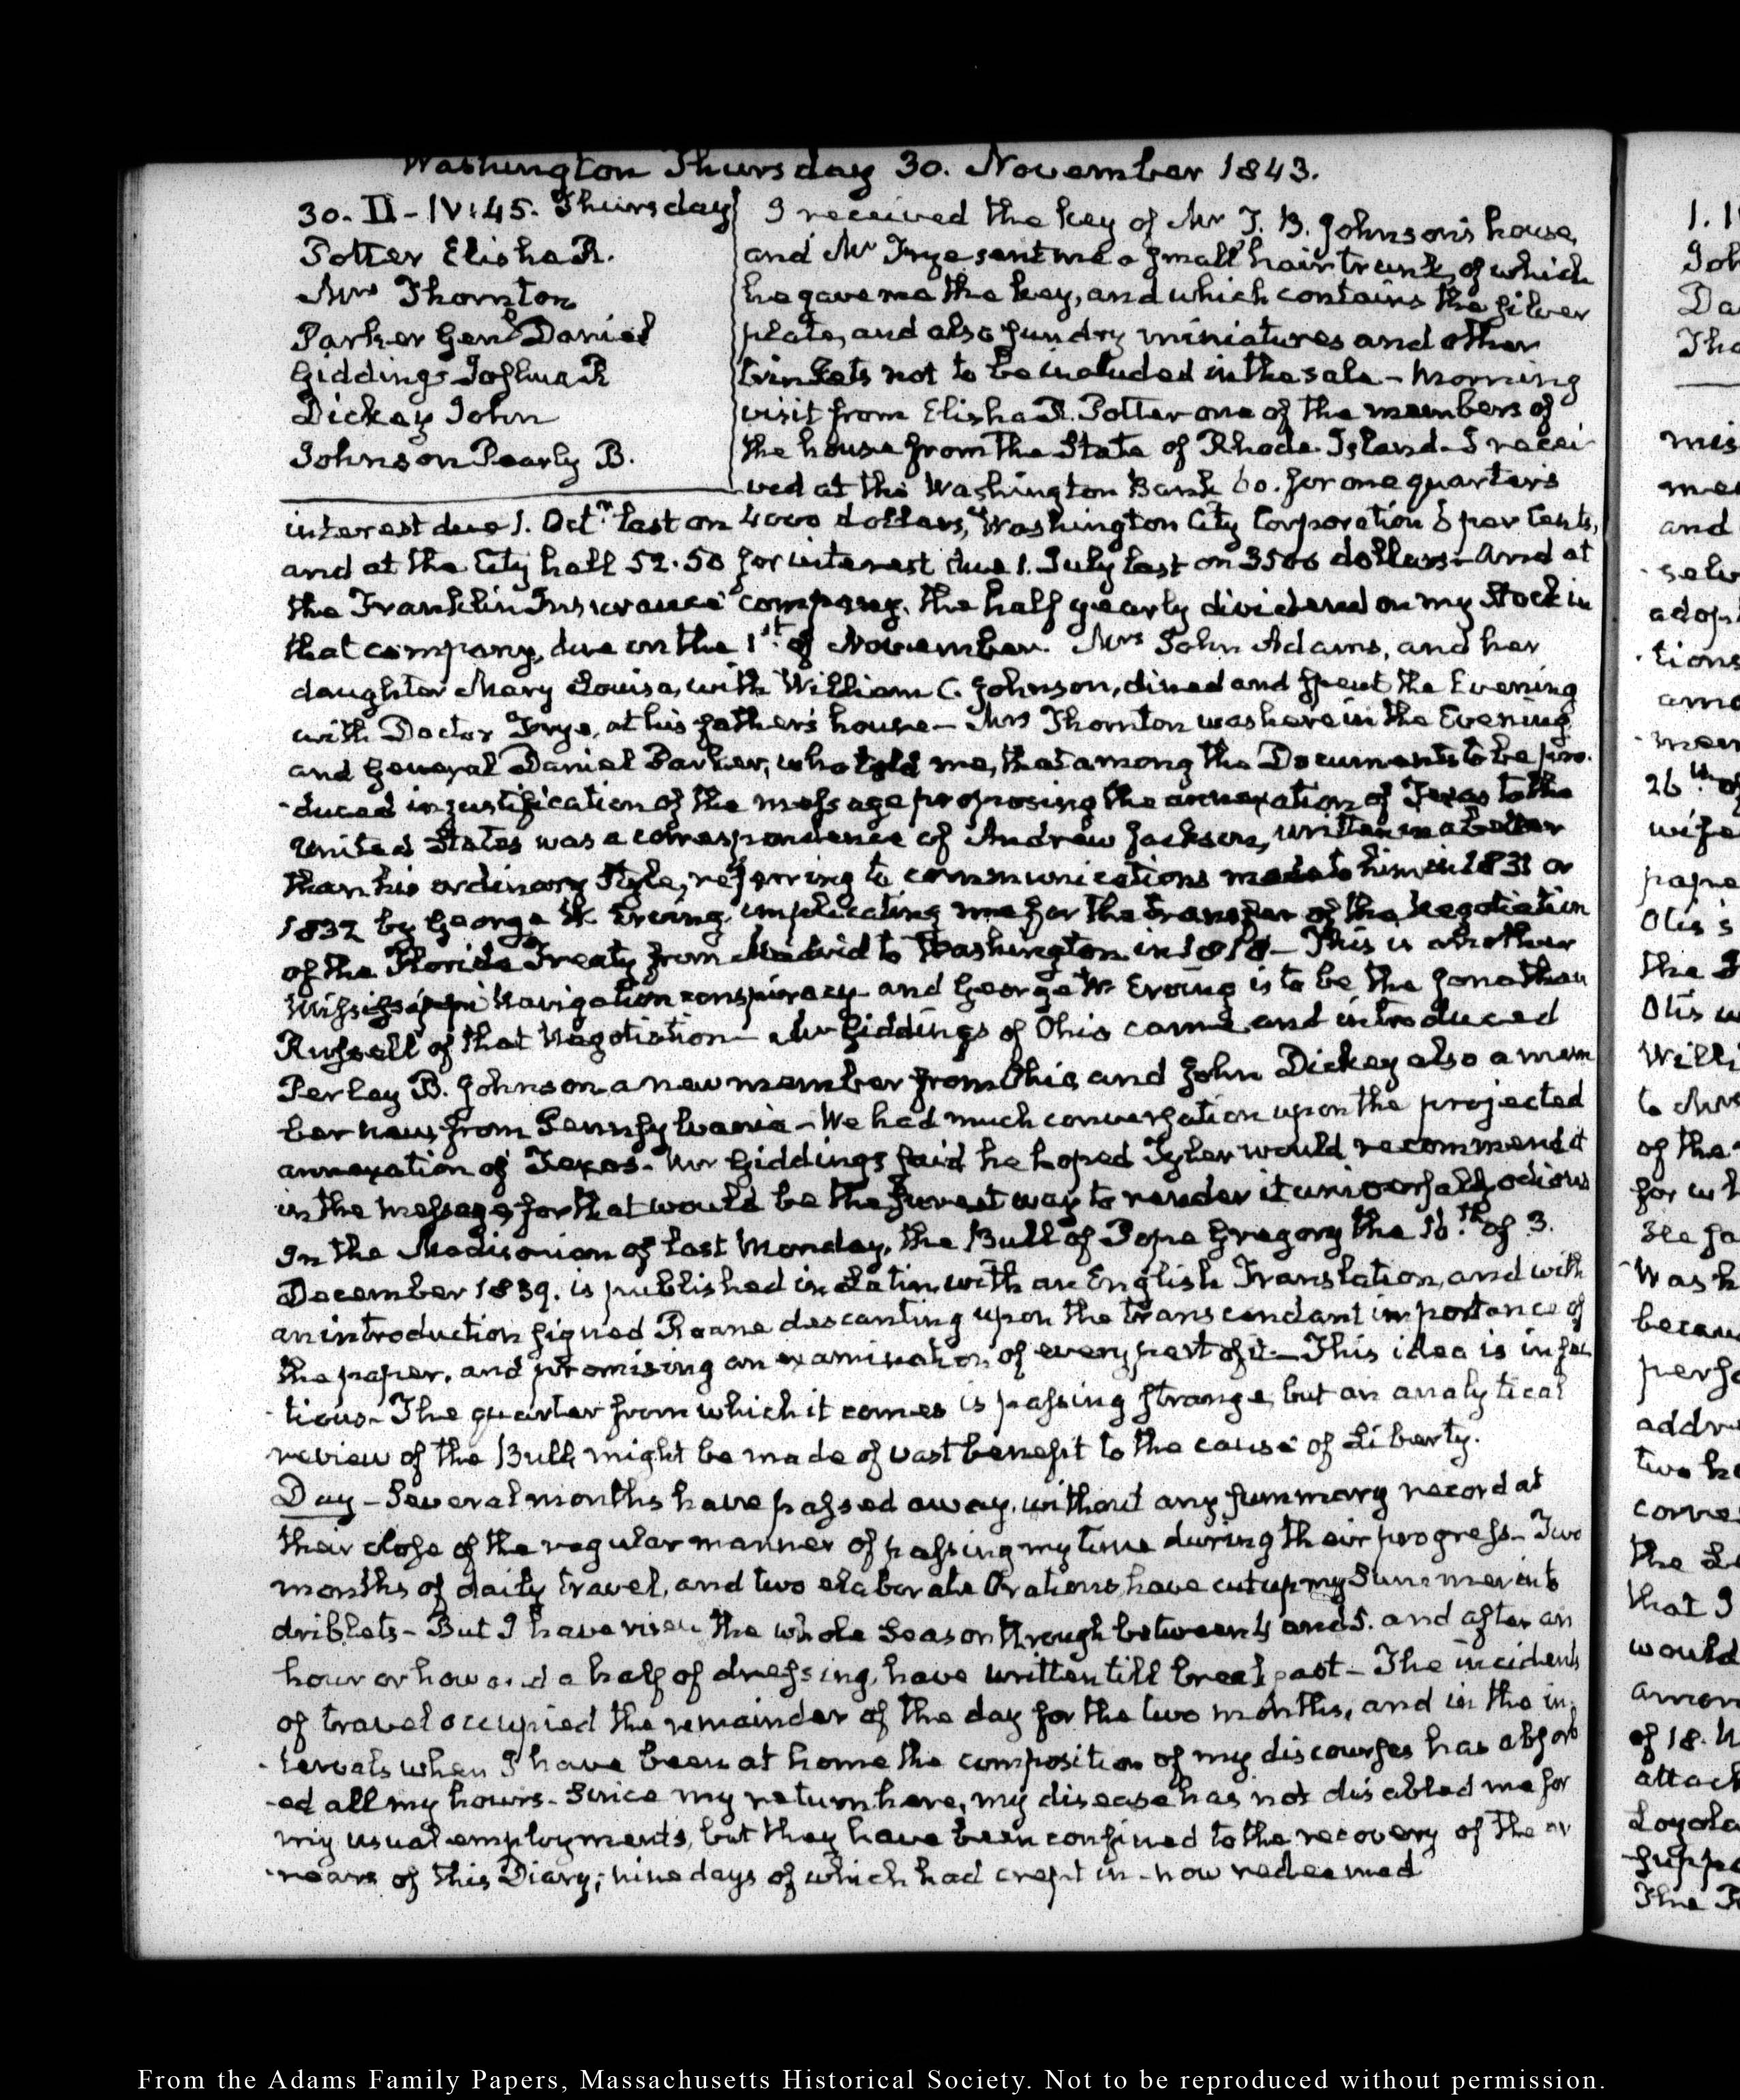 Washington Thursday 30. November 1843.
30. II - IV:45. Thursday
Potter Elisha R.
Mrs Thornton
Parker Genl Daniel
Giddings Joshua R
Dickey John
Johnson Pearly B.
I received the key of Mr T. B. Johnson's house,
and Mr Frye sent me a small hair trunk, of which
he gave me the key, and which contains the silver
plate, and also sundry miniatures and other
trinkets not to be included in the sale - Morning
visit from Elisha R. Potter one of the members of
the house from the State of Rhode Island - I recei
ved at the Washington Bank 60. for one quarter's
interest due 1. Octr last on 4000 dollars, Washington City Corporation 6 per Cents,
and at the City hall 52.50 for interest due 1. July last on 3500 dollars - And at
the Franklin Insurance company, the half yearly dividend on my Stock in
that company, due on the 1st of November. Mrs John Adams, and her
daughter Mary Louisa, with William C. Johnson, dined and spent the Evening
with Doctor Frye, at his father's house - Mrs Thornton was here in the Evening
and General Daniel Parker, who told me, that among the Documents to be pro-
-duced in justification of the message proposing the annexation of Texas to the
United States was a correspondence of Andrew Jackson, written in a better
than his ordinary Style, referring to communications made to him in 1831 or
1832 by George W. Erving, implicating me for the transfer of the Negotiation
of the Florida Treaty from Madrid to Washington in 1818 - This is another
Mississippi Navigation conspiracy - and George W. Erving is to be the Jonathan
Russell of that Negotiation - Mr Giddings of Ohio came and introduced
Perley B. Johnson a new member from Ohio, and John Dickey also a mem
ber new from Pennsylvania - We had much conversation upon the projected
annexation of Texas - Mr Giddings said he hoped Tyler would recommend it
in the message for that would be the surest way to render it universally odious
In the Madisonian of last Monday, the Bull of Pope Gregory the 16.th of 3.
December 1839. is published in Latin with an English Translation, and with
an introduction signed Roane descanting upon the transcendant importance of
the paper, and promising an examination of every part of it - This idea is infec
-tious - The quarter from which it comes is passing strange, but an analytical
review of the Bull, might be made of vast benefit to the cause of Liberty.
Day - Several months have passed away, without any summary record at
their close of the regular manner of passing my time during their progress - Two
months of daily travel, and two elaborate Orations, have cut up my Summer into
driblets - But I have risen the whole Season through between 4 and 5. and after an
hour or hour and a half of dressing, have written till breakfast - The incidents
of travel occupied the remainder of the day for the two months, and in the in-
-tervals when I have been at home the composition of my discourses has absorb
-ed all my hours - Since my return here, my disease has not disabled me for
my usual employments, but they have been confined to the recovery of the ar
-rears of this Diary; nine days of which had crept in - now redeemed
1. 1
Joh
Da
Tho
mis
mea
and
selv
adop
tions
amo
mem
26th of
wife
pape
Otis's
the
Otis w
Willi
to Mrs
of the
for wh
see fa
Wash
becau
perfo
addre
two ho
corre
the Le
that I
would
among
of 18. N
attach
Loyola
suppo
The
From the Adams Family Papers, Massachusetts Historical Society. Not to be reproduced without permission.